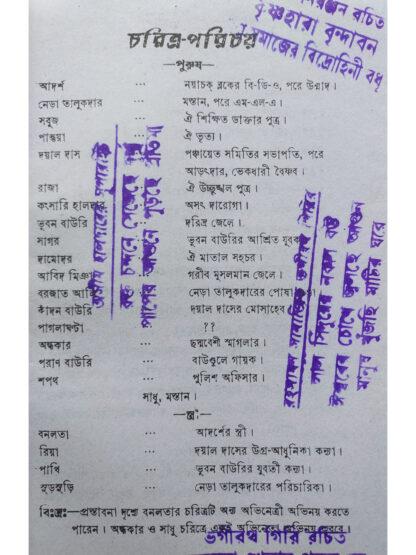 রঞ্জন রচিত
কৃষ্ণহারা বৃন্দাবন
সমাজের বিদ্রোহিনী বধূ
চরিত্র-পরিচয়
—পুরুষ—
আদর্শ ··· নয়াচক ব্লকের বি-ডি-ও, পরে উন্মাদ।
নেড়া তালুকদার ··· মস্তান, পরে এম-এল-এ।
সবুজ ··· ঐ শিক্ষিত ডাক্তার পুত্র।
পান্তুয়া ··· ঐ ভৃত্য।
দয়াল দাস ··· পঞ্চায়েত সমিতির সভাপতি, পরে
আড়ৎদার, ভেকধারী বৈষ্ণব।
রাজা ঐ উচ্ছৃঙ্খল পুত্র।
কংসারি হালদার অসৎ দারোগা।
ভুবন বাউরি দরিদ্র জেলে।
সাগর ভুবন বাউরির আশ্রিত যুবক
দামোদর ঐ মাতাল সহচর।
আবিদ মিঞা গরীব মুসলমান জেলে।
বরজাত আলি নেড়া তালুকদারের পোষা
কাঁদন বাউরি দয়াল দাসের মোসাহেব
পাগলাঘণ্টা ··· ??
অন্ধকার ··· ছদ্মবেশী স্মাগলার।
পরাণ বাউরি ··· বাউণ্ডুলে গায়ক।
শপথ ··· পুলিশ অফিসার।
সাধু, মস্তান।
—স্ত্রী—
বনলতা ··· আদর্শের স্ত্রী।
রিয়া ··· দয়াল দাসের উগ্র-আধুনিকা কন্যা।
পাখি ··· ভুবন বাউরির যুবতী কন্যা।
সুড়সুড়ি ··· নেড়া তালুকদারের পরিচারিকা।
বিঃদ্রঃ—প্রস্তাবনা দৃশ্যে বনলতার চরিত্রটি অন্য অভিনেত্রী অভিনয় করতে
পারেন। অন্ধকার ও সাধু চরিত্রে একই অভিনেতা অভিনয় করবে।
রক্ত চন্দনে সেজেছে
পাপের আগুনে পুড়ছে
লাল সিঁদুরের নকল বউ
ঈশ্বরের চোখে জ্বলছে আগুন
মানুষ খুঁজছি মাটির ঘরে
ভগীরথ গিরি রচিত